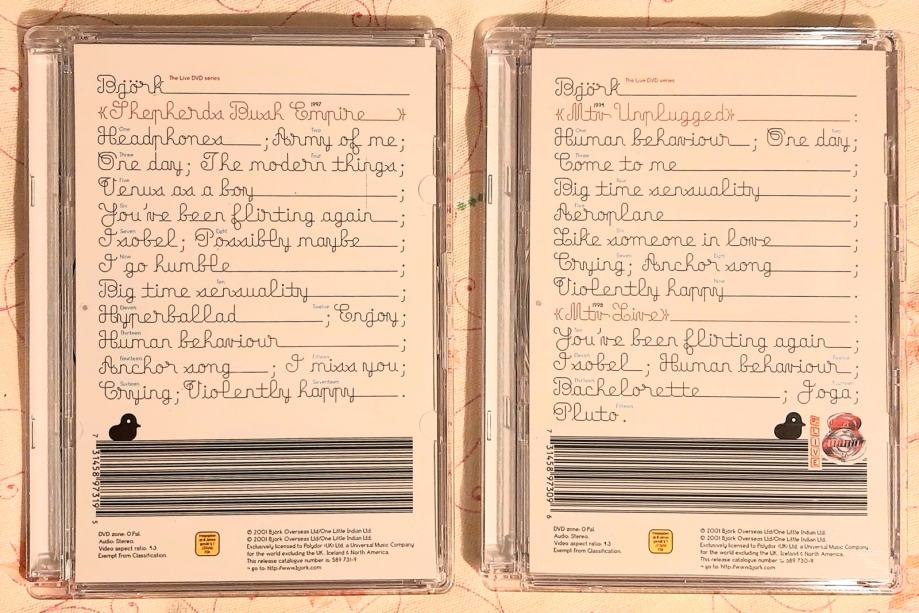 Björk The Live DVD series
«Shepherds Bush Empire 1997»
One Headphones; Two Army of me;
Three One day; Four The modern things;
Five Venus as a boy;
Six You've been flirting again;
Seven Isobel; Eight Possibly maybe;
Nine I go humble;
Ten Big time sensuality;
Eleven Hyperballad; Twelve Enjoy;
Thirteen Human behaviour;
Fourteen Anchor song; Fifteen I miss you;
Sixteen Crying; Seventeen Violently happy.
7 31458 97319 5
DVD zone: 0 Pal.
Audio: Stereo.
Video aspect ratio: 4:3
Exempt from Classification.
℗ 2001 Björk Overseas Ltd/One Little Indian Ltd.
© 2001 Björk Overseas Ltd/One Little Indian Ltd.
Exclusively licensed to Polydor (UK) Ltd, a Universal Music Company
for the world excluding the UK, Iceland & North America.
This release catalogue number is 589 731-9
→ go to: http://www.bjork.com
Björk The Live DVD series
«Mtv Unplugged» 1994:
Human behaviour; Two One day;
Come to me;
Four Big time sensuality;
Five Aeroplane;
Six Like someone in love;
Seven Crying; Eight Anchor song;
Nine Violently happy
«Mtv Live» 1998:
Ten You've been flirting again;
Eleven Isobel; Twelve Human behaviour;
Thirteen Bachelorette; Fourteen Joga;
Fifteen Pluto.
LIVE
7 31458 97309 6
DVD zone: 0 Pal.
Audio: Stereo.
Video aspect ratio: 4:3
Exempt from Classification.
℗ 2001 Björk Overseas Ltd/One Little Indian Ltd.
© 2001 Björk Overseas Ltd/One Little Indian Ltd.
Exclusively licensed to Polydor (UK) Ltd, a Universal Music Company
for the world excluding the UK, Iceland & North America.
This release catalogue number is 589 730-9
→ go to: http://www.bjork.com